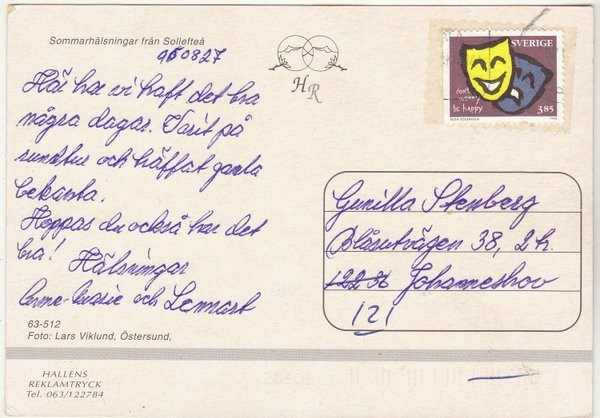 Sommarhälsningar från Sollefteå
950827
Här har vi haft det bra
några dagar. Varit på
rundtur och träffat gamla
bekanta.
Hoppas du också har det
bra!
Hälsningar
Anne-Marie och Lennart
63-512
Foto: Lars Viklund, Östersund,
HALLENS
REKLAMTRYCK
Tel. 063/122784
HR
SVERIGE
don't
worry
be happy
3.85
Gunilla Stenberg
Blåsutvägen 38, 2 tr.
122 36 Johanneshov
121